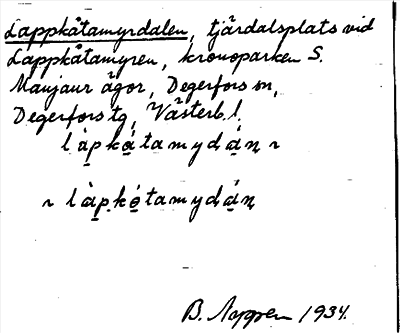 Lappkåtamyrdalen, tjärdalsplats vid
Lappkåtamyren, kronoparken S.
Manjaur ägor, Degerfors sn,
Degerfors tg, Västerb. l.
làpkå̀tamydán ~
~ làpkǻtamydán
B. 1934.